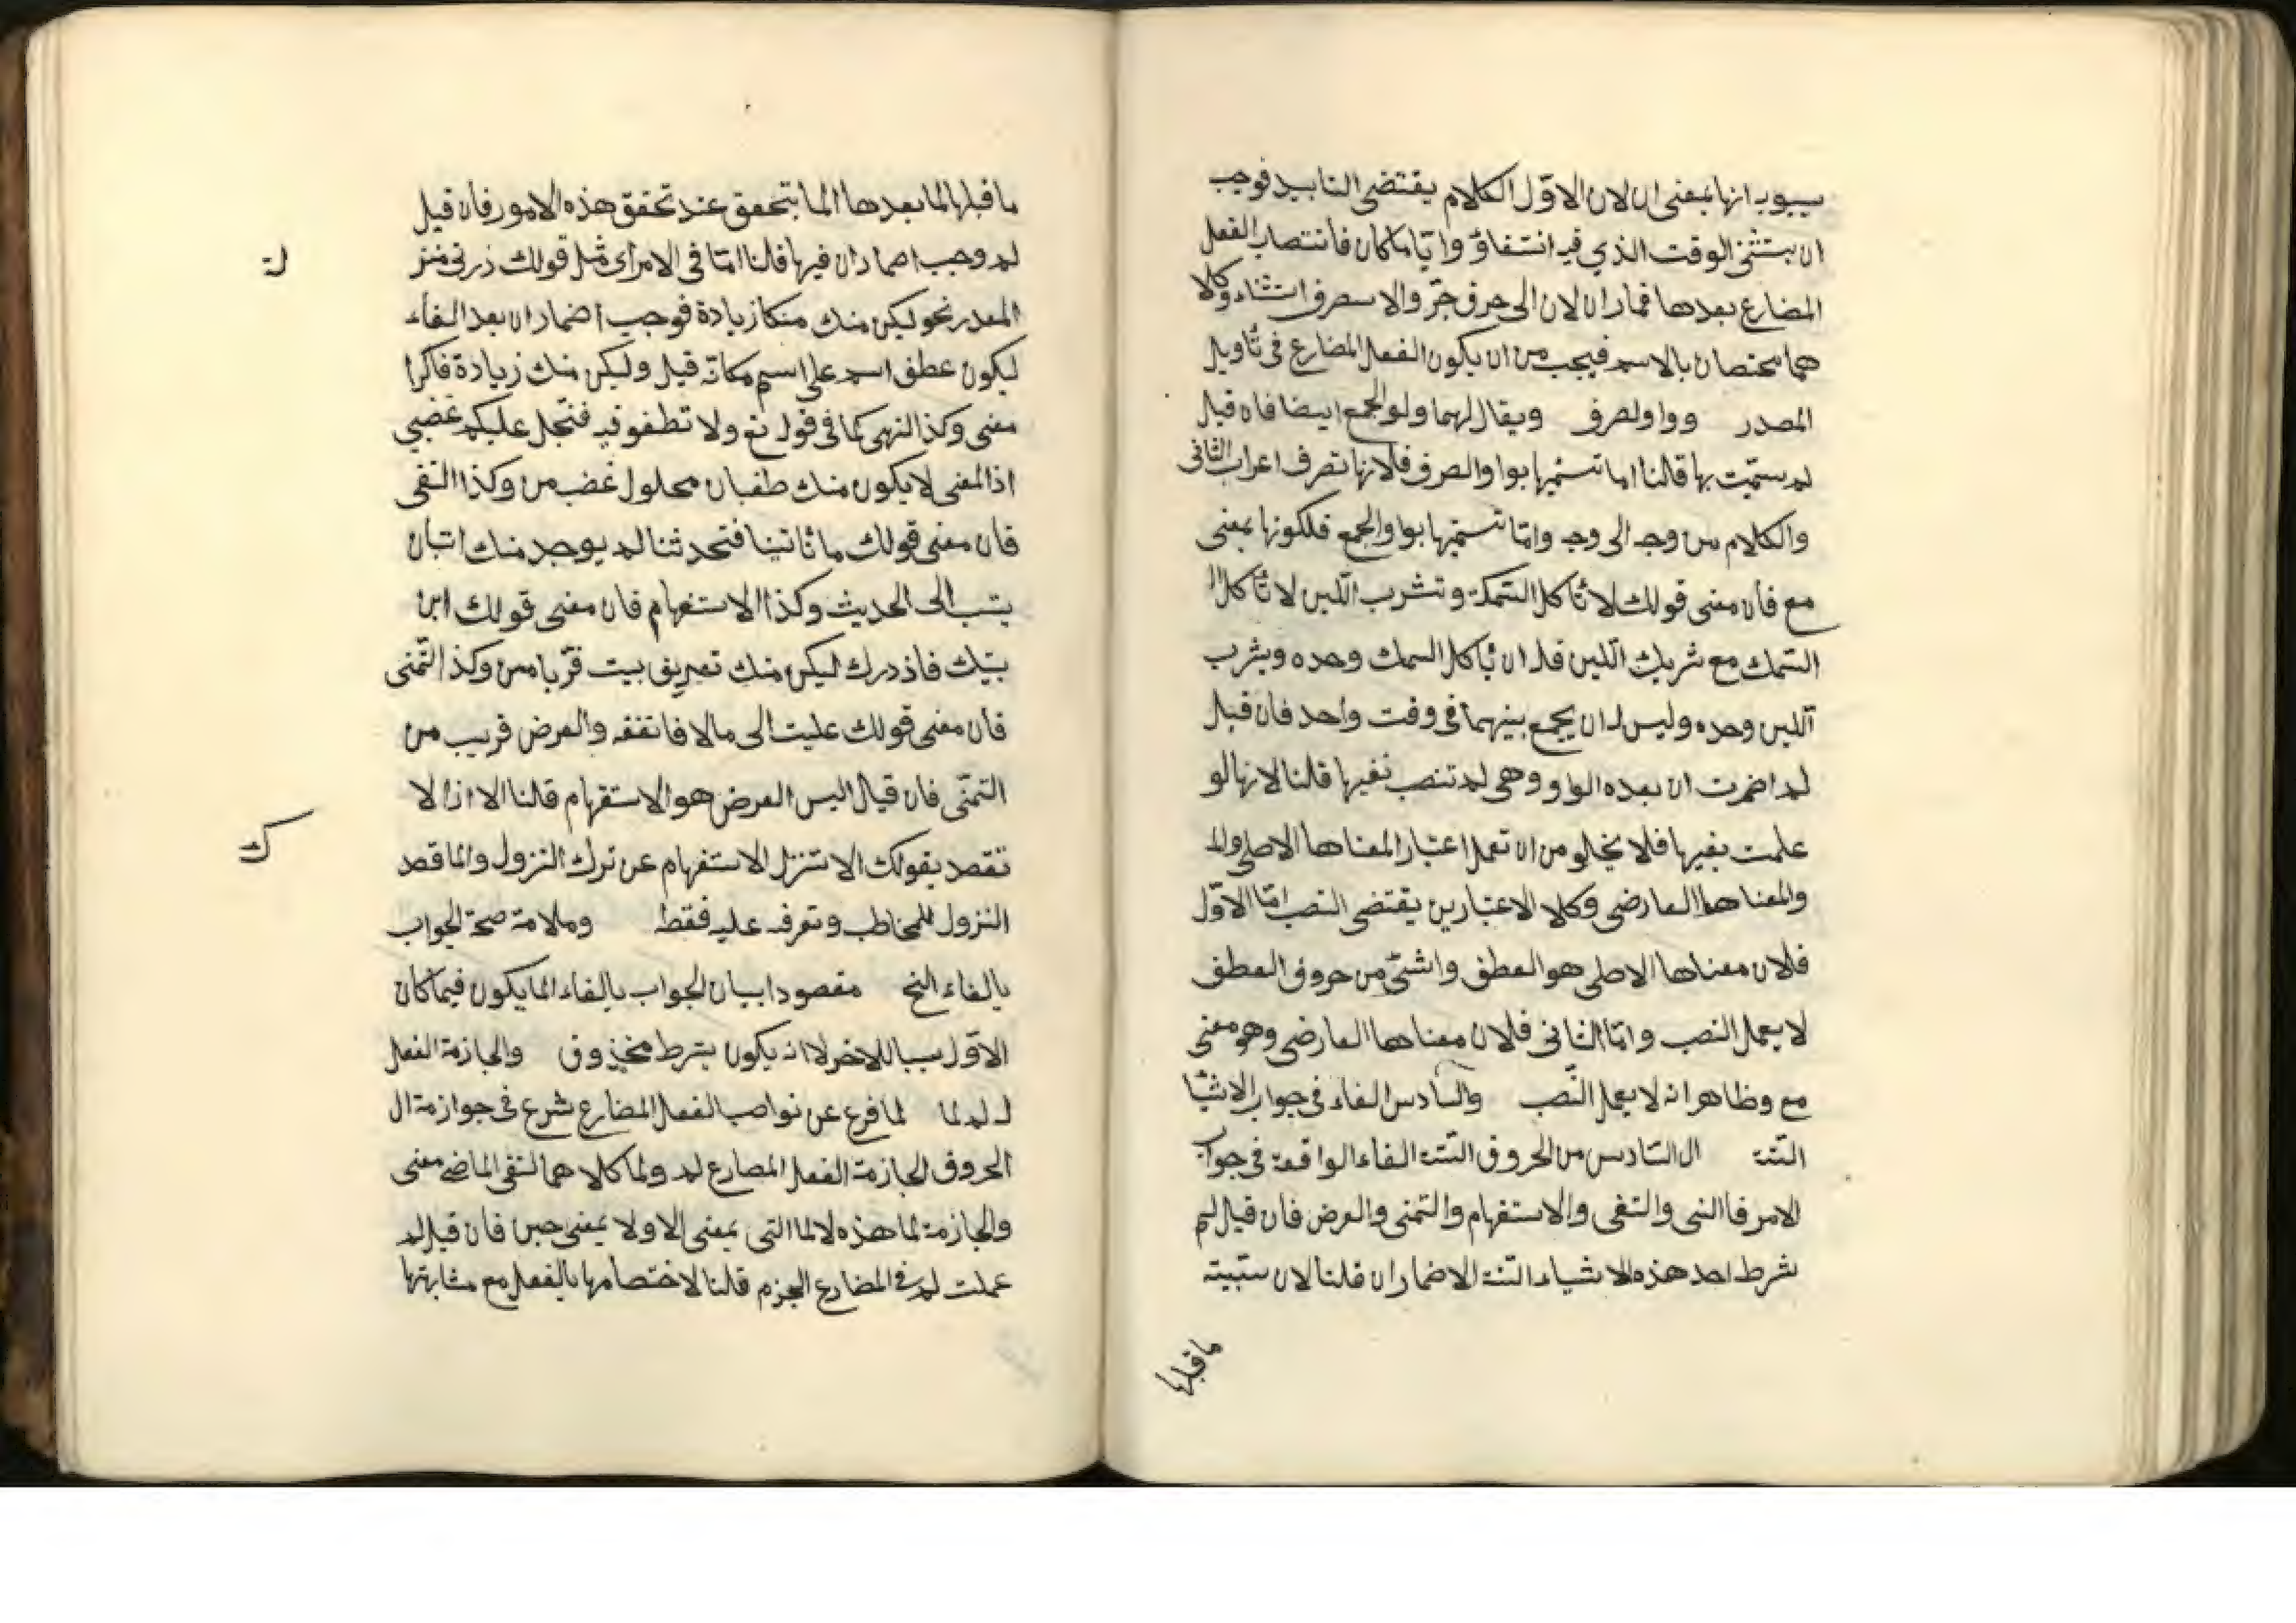 سيبويه انها بمعنى ان لان الاوّل الكلام يقتضى التابيد فوجب
ان يستثنى الوقت الذي فيه انتفاؤ وايّاما كان فانتصاب الفعل
المضارع بعدها فماران لان الى حرف جرّ والا حرف استثناء وكلا
هما مختصان بالاسم فيجب من ان يكون الفعل المضارع فى تأويل
المصدر وواو لصرف ويقال لهما ولو الجمع ايضا فان قيل
لم سمّيت بها قالنا اما تسميتها بواو الصرف فلانها تصرف اعراب الثانى
والكلام من وجه الى وجه وامّا تسميتها بواو الجمع فلكونها بمعنى
مع فأن معنى قولك لا تأكل السّمكة وتشرب اللّبن لا تأكل ا
السّمك مع شربك اللّبن فله ان يأكل السمك وحده ويشرب
اللبن وحده وليس له ان يجمع بينهما فى وقت واحد فان قيل
لم اضمرت ان بعده الواو وهى لم تنصب نفيرها قلنا لانها لو
علمت بغيرها فلا يخلو من ان تعمل اعتبار المعناها الاصلى والم
والمعناها العارضى وكلا الاعتبارين يقتضى النصب امّا الاوّل
فلان معناها الاصلى هو العطف واشئ من حروف العطف
لا يعمل النصب وامّا الثانى فلان معناها العارضى وهو معنى
مع وظاهر انه لا يعمل النّصب والسّادس الفاء فى جواب الاشيا
السّتة ال السّادس من الحروف السّتة الفاء الواقعة فى جواب
الامر فا النهى والنفى والاستفهام والتمنى والعرض فان قيل لم
شرط احد هذه الاشياء السّتة الاضماران قلنا لان سببيته
ما قبلها
ما قبلها لما بعدها انما يتحقق عند تحقق هذه الامور فان قيل
لم وجب اضمار ان فيها قلنا امّا فى الامر اى مثل قولك زرنى
المصدر نحو ليكن منك زيادة فوجب أضمار ان بعد الفاء
ليكون عطف اسم على اسم مكانّه قيل وليكن منك زيادة فاكرا
معنى وكذا النهى كما فى قوله تع ولا تطغوا فيه فيحلّ عليكم غضبي
اذ المعنى لا يكون منك طغيان محلول غضب من وكذا النفى
فان معنى قولك ما تأتينا فتحدثنا لم يوجد منك اتيان
الى الحديث وكذا الاستفهام فان معنى قولك اين
بيتك فاذ درك ليكن منك تعريف بيت من وكذا التّمنى
فان معنى قولك عليت الى مالا فانفقه والعرض قريب من
التمنّى فان قيال اليس العرض هو الاستفهام قالنا الا اذا لا
تقصد بقولك الا تنزل الاستفهام عن ترك النزول وانما قصد
النزول للمخاطب وتعرفه عليه فقط وملامة صحة الجواب
بالفاء النح مقصودا بيبان الجواب بالفاء انما يكون فيما كان
الاوّل سببا للاخر لا انه يكون بشرط محذوف والجازمة الفعل
لم لما لما فرغ عن نواصب الفعل المضارع شرع فى جوازمة ال
الحروف الجازمة الفعل المضارع لم ولما كلاهما لنفى الماضى معنى
والجازمة لما هذه لا لما التى بمعنى الا ولا بمعنى حين فان قيل لم
عملت لم فى المضارع الجزم قلنا لاختصاصها بالفعل مع مشابهتها